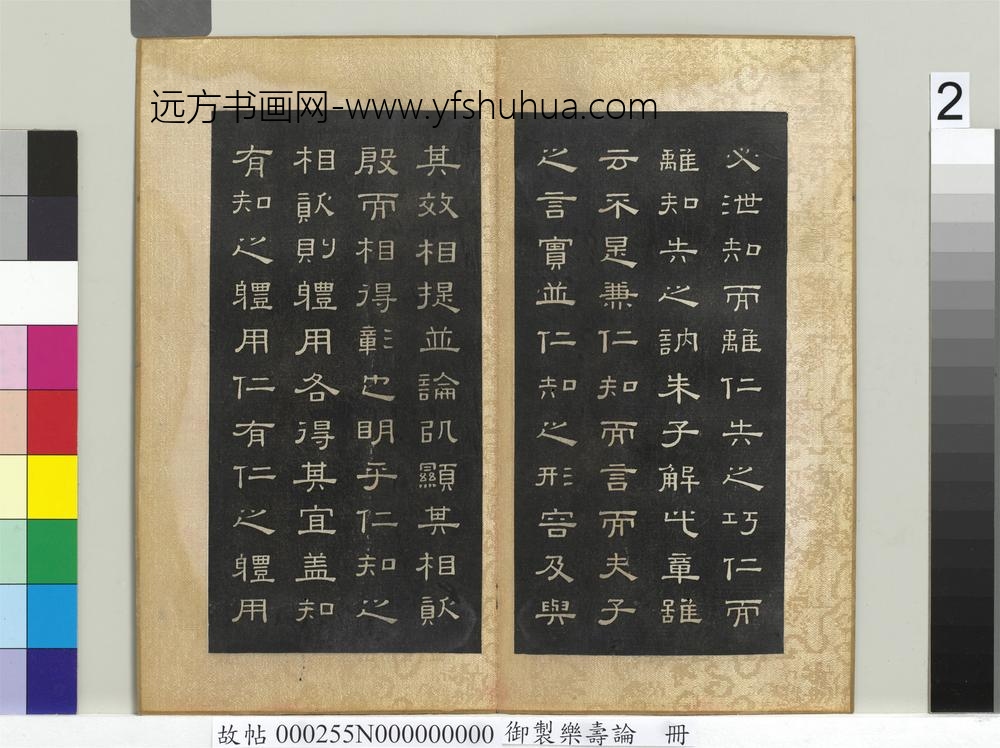 远方书画网-www.yfshuhua.com
2
必泄知而離仁失之巧仁而
離知失之訥朱子解此章雖
云不是兼仁知而言而夫子
之言實並仁知之形容及與
其效相提並論以顯其相須
殷而相得彰也明乎仁知之
相須則體用各得其宜蓋知
有知之體用仁有仁之體用
故帖 000255N000000000 御製樂壽論 冊